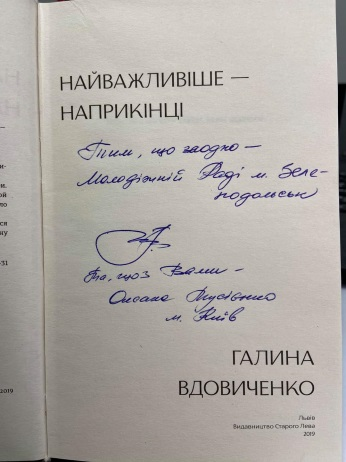 НАЙВАЖЛИВІШЕ —
НАПРИКІНЦІ
Тим, що заодно —
Молодіжній Раді м. Зеле-
нодольськ
Та, що з Вами —
Оксана
м. Київ
ГАЛИНА
ВДОВИЧЕНКО
Львів
Видавництво Старого Лева
2019